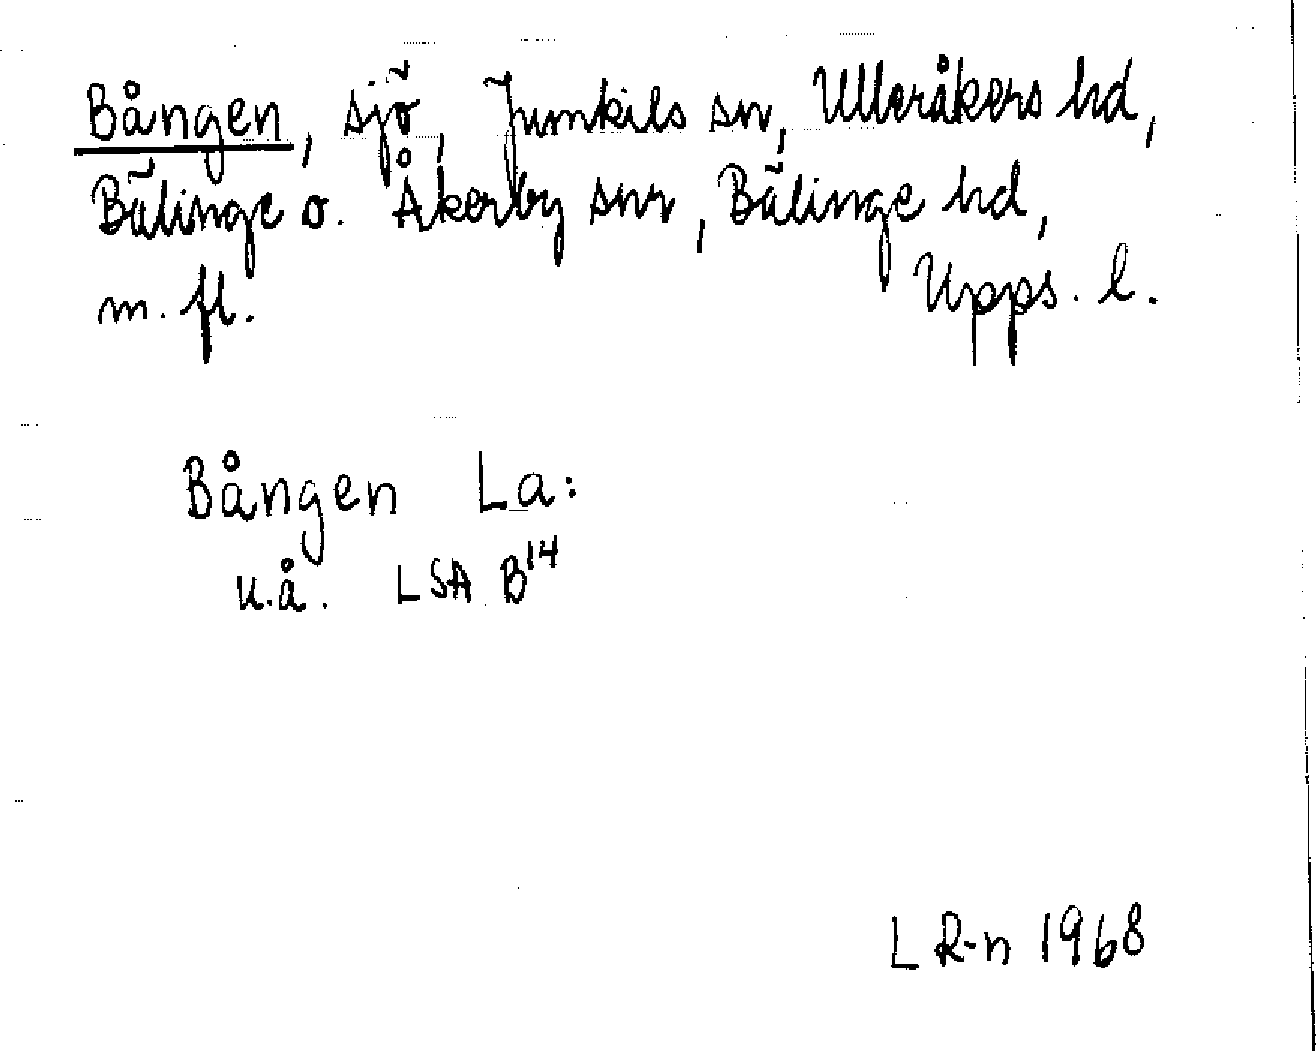 Bången, sjö, Jumkils sn, Ulleråkers hd,
Bälinge o. Åkerby snr, Bälinge hd,
m. fl. Upps. l.
Bången La:
u.å. LSA B14
L R-n 1968